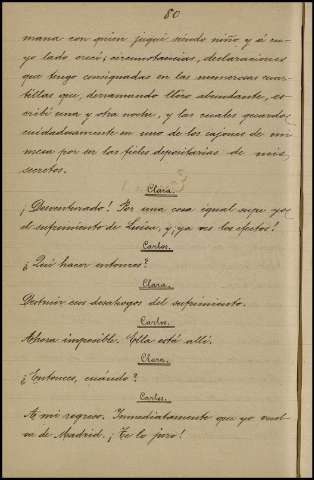 80
mana con quién jugué siendo niño y á cu-
yo lado crecí; circunstancias, declaraciones
que tengo consignadas en las numerosas cuar-
tillas que, derramando lloro abundante, es-
cribí una y otra noche, y las cuales guardo
cuidadosamente en uno de los cajones de mi
mesa por en las fieles depositarias de mis
secretos.
Clara.
¡Desventurado! Por una cosa igual supe yo
el sufrimiento de Luisa; y, ya ves los efectos!
Carlos.
¿Qué hacer entonces?
Clara.
Destruir esos desahogos del sufrimiento.
Carlos.
Ahora imposible. Ella está allí.
Clara.
¿Entonces, cuándo?
Carlos.
A mi regreso. Inmediatamente que yo vuel-
va de Madrid. ¡Te lo juro!